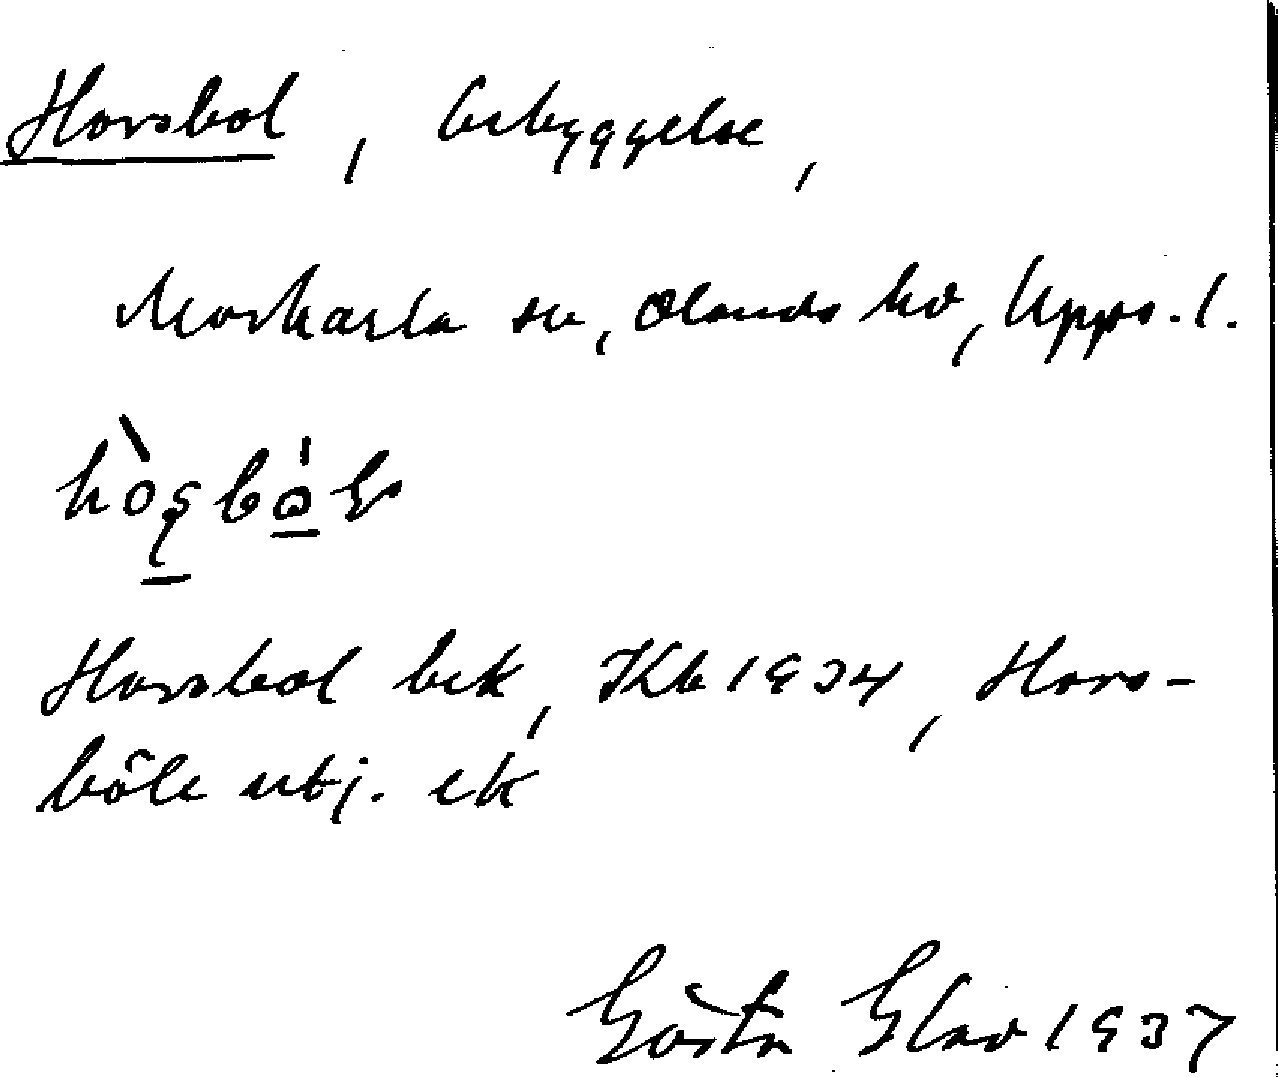 Horsbol, bebyggelse,
Morkarla sn, Olands hd, Upps. l.
Horsbol bek, Kb 1934, Hors-
böle utj. ek
Gösta Elav 1937